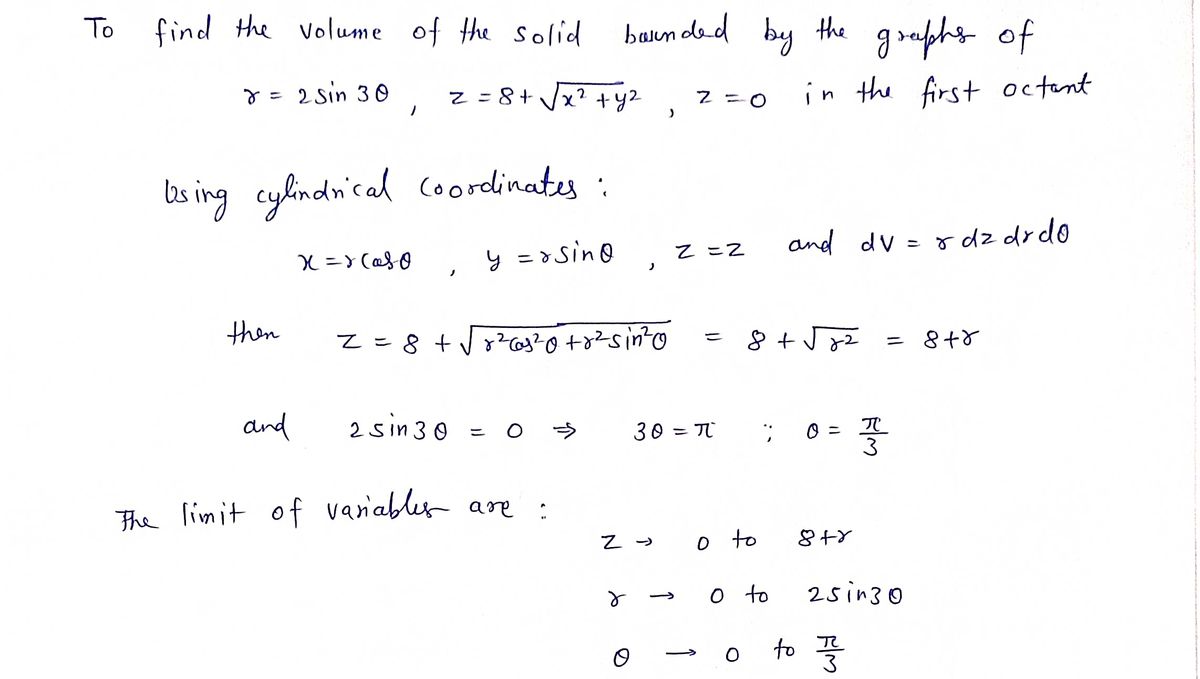 To find the volume of the solid bounded by the graphs of
r = 2 sin 3θ , z = 8 + √(x² + y²) , z = 0 in the first octant
Using cylindrical coordinates :
x = r cos θ , y = r sin θ , z = z and dv = r dz dr dθ
then z = 8 + √(r² cos² θ + r² sin² θ) = 8 + √(r²) = 8 + r
and 2 sin 3θ = 0 ⇒ 3θ = π ; θ = π/3
The limit of variables are :
z → 0 to 8 + r
r → 0 to 2 sin 3θ
θ → 0 to π/3